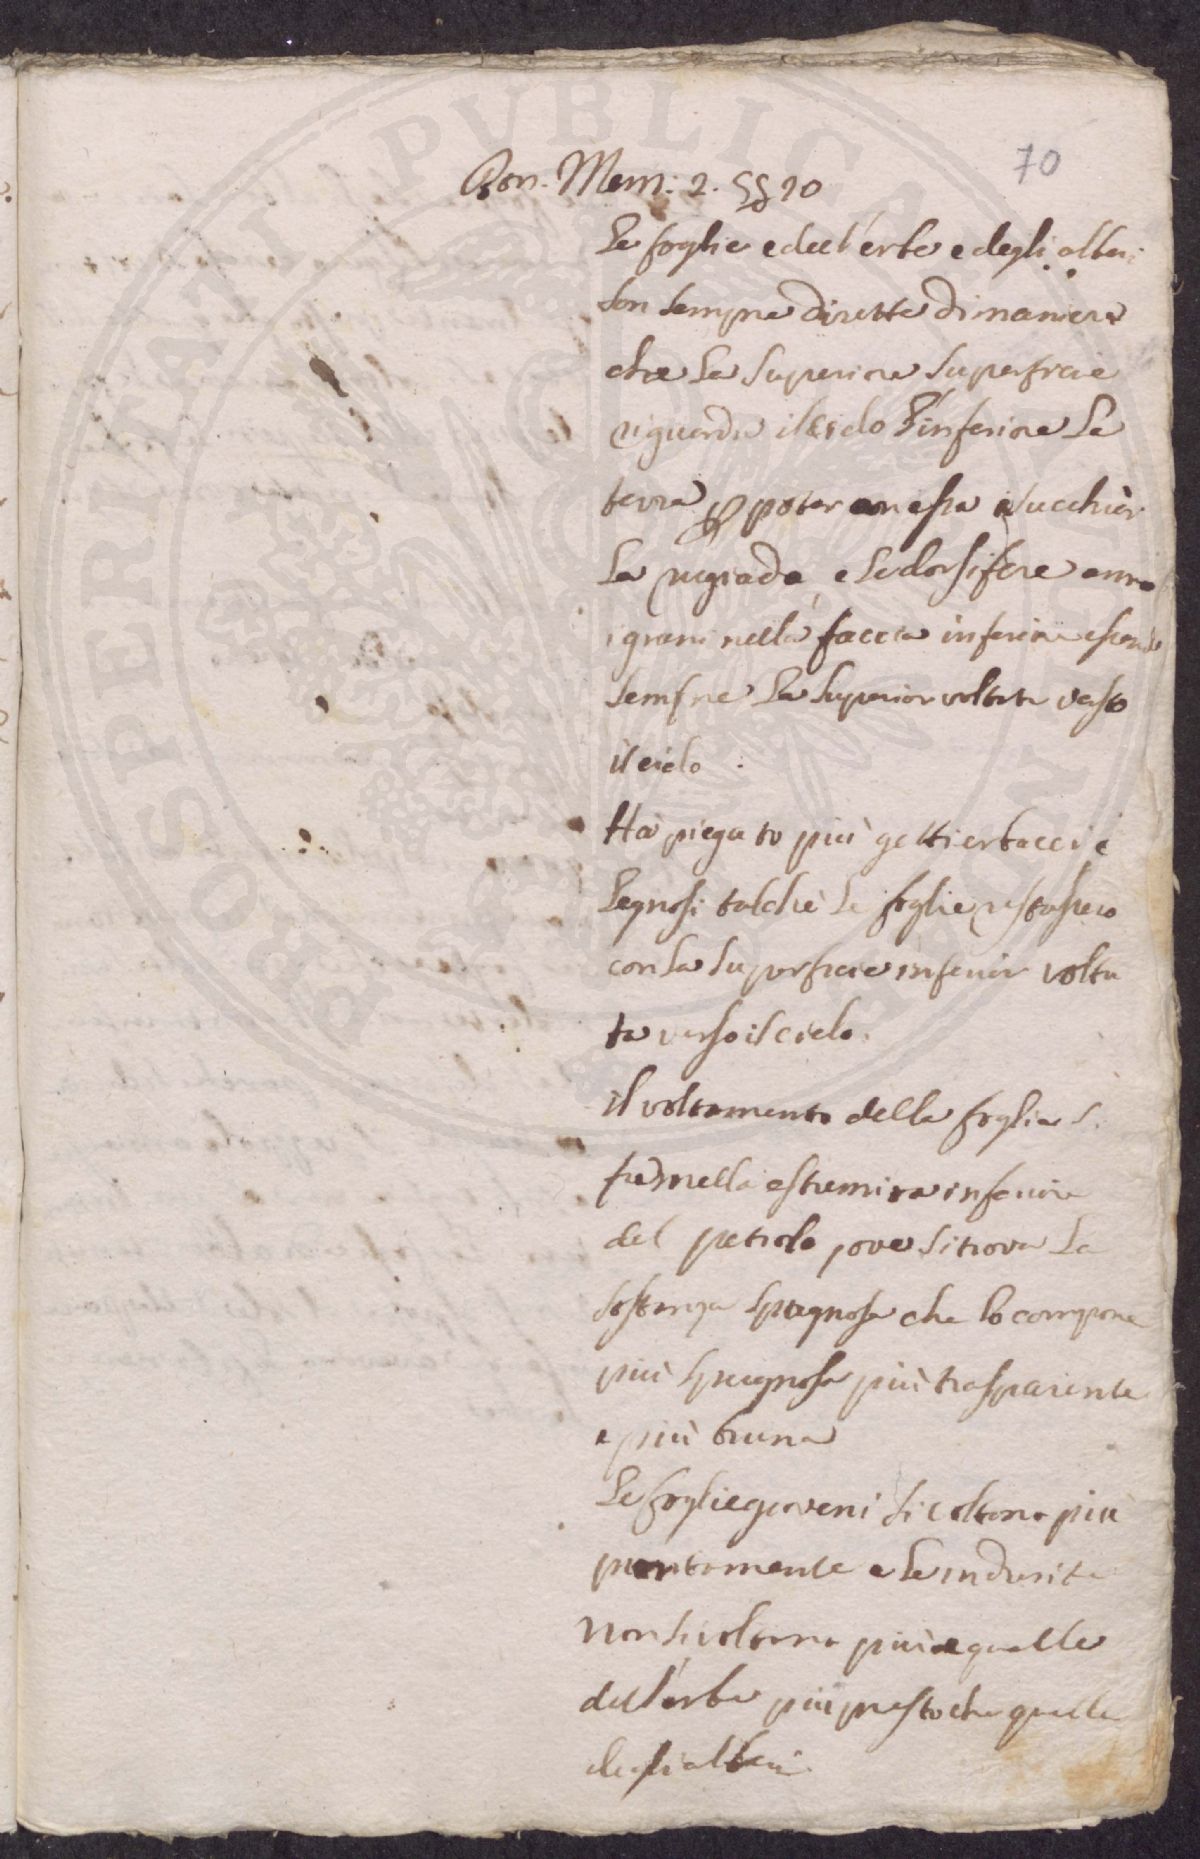 70
Bon. Mem: 2. §§ 20
Le foglie e dell'erbe e degli alberi
son sempre dirette di maniera
che la superiore superficie
riguarda il cielo l'inferiore la
terra p poter con essa succhiar
la rugiada, e le dorsifere anno
i grani nella faccia inferiore essendo
sempre la superior voltata verso
il cielo.
Ha piegato più getti erbacei e
legnosi talchè le foglie restassero
con la superficie inferior volta
ta verso il cielo.
il voltamento della foglia si
fa nella estremità inferiore
del petiolo, ove si trova la
sostanza spugnosa che lo compone
più spugnosa più trasparente
e più bruna
Le foglie giovani si voltano più
prontamente e le indurite
non si voltano più e quelle
dell'erbe più presto che quelle
degli alberi.
PROSPERITATI PUBLICAE AUGENDAE